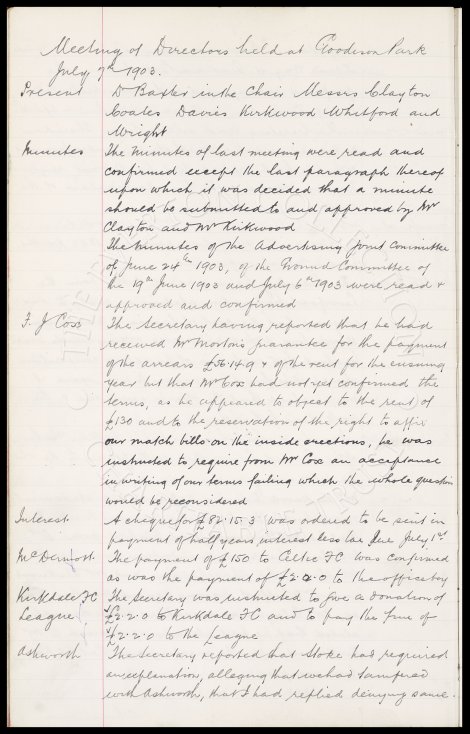 Meeting of Directors held at Goodison Park
July 7th 1903.
Present Dr Baxter in the Chair Messrs Clayton
Coates Davies Kirkwood Whitford and
Wright
Minutes The Minutes of last meeting were read and
confirmed except the last paragraph thereof
upon which it was decided that a minute
should be submitted to and approved by Mr
Clayton and Mr Kirkwood
The Minutes of the Advertising Joint Committee
of June 24th 1903, of the Ground Committee of
the 19th June 1903 and July 6th 1903 were read &
approved and confirmed
F. J Cox The Secretary having reported that he had
received Mr Morton's guarantee for the payment
of the arrears £56.14.9 & of the rent for the ensuing
year but that Mr Cox had not yet confirmed the
terms, as he appeared to object to the rent of
£130 and to the reservation of the right to affix
our match bills on the inside erections, he was
instructed to require from Mr Cox an acceptance
in writing of our terms failing which the whole question
would be reconsidered
Interest A cheque for £82.15.3 was ordered to be sent in
payment of half years interest less tax due July 1st
McDermott The payment of £150 to Celtic FC was confirmed
as was the payment of £2.2.0 to the office boy
Kirkdale FC The Secretary was instructed to give a donation of
League £2.2.0 to Kirkdale FC and to pay the fine of
£2.2.0 to the League
Ashworth The Secretary reported that Stoke had required
an explanation, alleging that we had tampered
with Ashworth, that I had replied denying same.